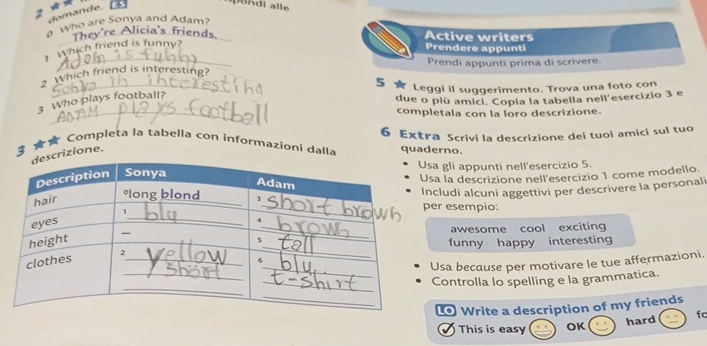 2 ★★ domande. ES
pondi alle
0 Who are Sonya and Adam?
They're Alicia's friends.
1 Which friend is funny?
Adom is fuhhy
2 Which friend is interesting?
3 Who plays football?
ADAM plays football
3 ★★ Completa la tabella con informazioni dalla
descrizione.
Description Sonya Adam
hair 0 long blond 3 short brown
eyes 1 blu 4 brown
height — 5 tall
clothes 2 yellow short 6 blu t-shirt
Active writers
Prendere appunti
Prendi appunti prima di scrivere.
5 ★ Leggi il suggerimento. Trova una foto con
due o più amici. Copia la tabella nell'esercizio 3 e
completala con la loro descrizione.
6 Extra Scrivi la descrizione dei tuoi amici sul tuo
quaderno.
• Usa gli appunti nell'esercizio 5.
• Usa la descrizione nell'esercizio 1 come modello.
• Includi alcuni aggettivi per descrivere la personali
per esempio:
awesome cool exciting
funny happy interesting
• Usa because per motivare le tue affermazioni.
• Controlla lo spelling e la grammatica.
LO Write a description of my friends
This is easy OK hard fo